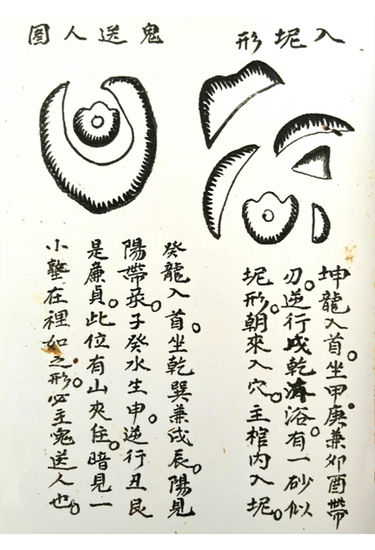 入坭形
坤龍入首。坐甲庚兼卯酉帶
刃。逆行戌乾浴。有一砂似
坭形。朝來入穴。主棺內入坭。
鬼送人圖
癸龍入首。坐乾巽兼戌辰。陽見
陽帶。子癸水生申。逆行丑艮
是廉貞。此位有山夾住。暗見一
小在裡如之形。必主鬼送人也。